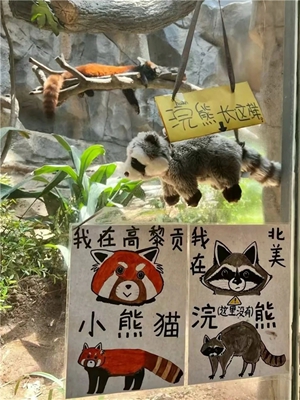 浣熊长这样
我在高黎贡
小熊猫
我在北美
浣(这里没有)熊